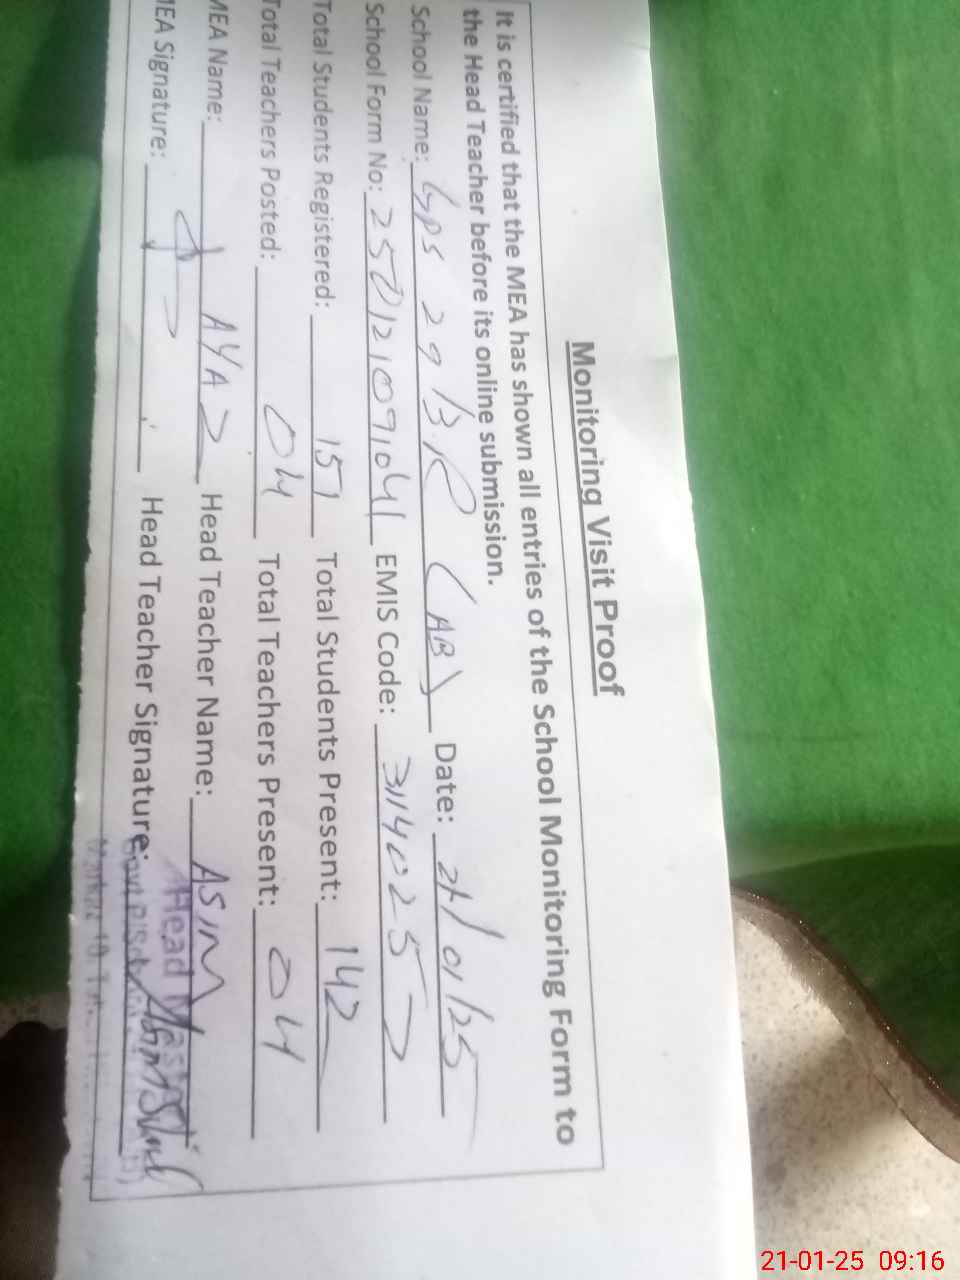 Monitoring Visit Proof
It is certified that the MEA has shown all entries of the School Monitoring Form to
the Head Teacher before its online submission.
School Name: GPS 29/3.R (AB) Date: 21/01/25
School Form No: 250121091041 EMIS Code: 31140257
Total Students Registered: 151 Total Students Present: 142
Total Teachers Posted: 04 Total Teachers Present: 04
MEA Name: AYAZ Head Teacher Name: ASIM
MEA Signature: Head Teacher Signature:
Head Master
21-01-25 09:16